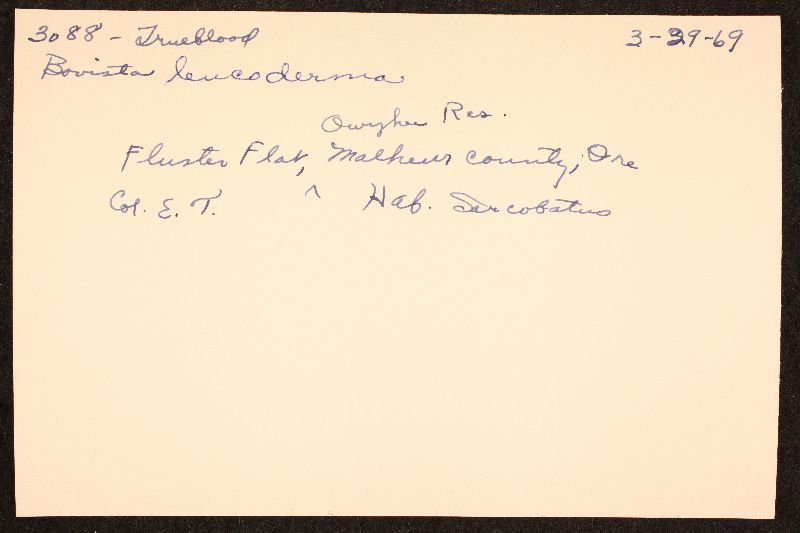 3088 - Trueblood 3-29-69
Bovista leucoderma
Owyhee Res.
Fluster Flat, Malheur County, Ore
Col. E. T. ^ Hab. Sarcobatus